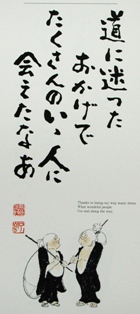 道に迷った
おかげで
たくさんのいい人に
会えたなあ
Thanks to losing my way many times
What wonderful people
I've met along the way.